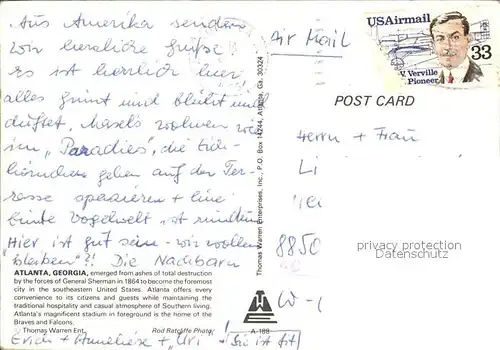 Aus Amerika senden
wir herzliche Grüße!
es ist herrlich hier,
alles grünt und blüht und
duftet, wohnen wir
im „Paradies“, die Eich-
hörnchen gehen auf der Ter-
rasse spazieren + eine
bunte Vogelwelt ist rundum
Hier ist gut sein - wir wollen
bleiben"?! Die Nachbarn
ATLANTA, GEORGIA, emerged from ashes of total destruction
by the forces of General Sherman in 1864 to become the foremost
city in the southeastern United States. Atlanta offers every
convenience to its citizens and guests while maintaining the
traditional hospitality and casual atmosphere of Southern living.
Atlanta's magnificent stadium in foreground is the home of
the Braves and Falcons.
Thomas Warren Ent. Rod Ratcliffe Photo
Erich + Anneliese + „Uri“ (Sie ist fit)
A-188
Thomas Warren Enterprises, Inc., P.O. Box 14244, Atlanta, Ga. 30324
Air Mail
USAirmail
33
V. Verville
Pioneer
POST CARD
Herrn + Frau
Li
8850
W-
privacy protection
Datenschutz